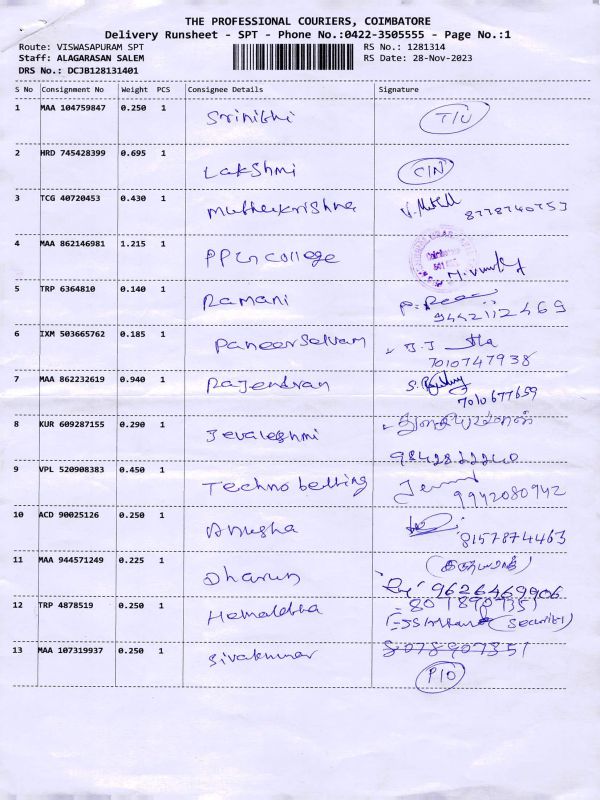 THE PROFESSIONAL COURIERS, COIMBATORE
Delivery Runsheet - SPT - Phone No.:0422-3505555 - Page No.:1
Route: VISWASAPURAM SPT RS No.: 1281314
Staff: ALAGARASAN SALEM RS Date: 28-Nov-2023
DRS No.: DCJB128131401
S No Consignment No Weight PCS Consignee Details Signature
1 MAA 104759847 0.250 1 Srinithi T/U
2 HRD 745428399 0.695 1 Lakshmi CIN
3 TCG 40720453 0.430 1 Muthukrishna
8778740753
4 MAA 862146981 1.215 1 PPG College
5 TRP 6364810 0.140 1 Ramani
9442112469
6 IXM 503665762 0.185 1 Paneerselvam
7010747938
7 MAA 862232619 0.940 1 Rajendran
7010677659
8 KUR 609287155 0.290 1 Jevalashmi
9842822240
9 VPL 520908383 0.450 1 Techno belting
9942080942
10 ACD 90025126 0.250 1 Anusha
8157874463
11 MAA 944571249 0.225 1 Dharun
9626469906
12 TRP 4878519 0.250 1 Hemalatha
8078907351
(Security)
13 MAA 107319937 0.250 1 Sivakumar 8078907351
P10